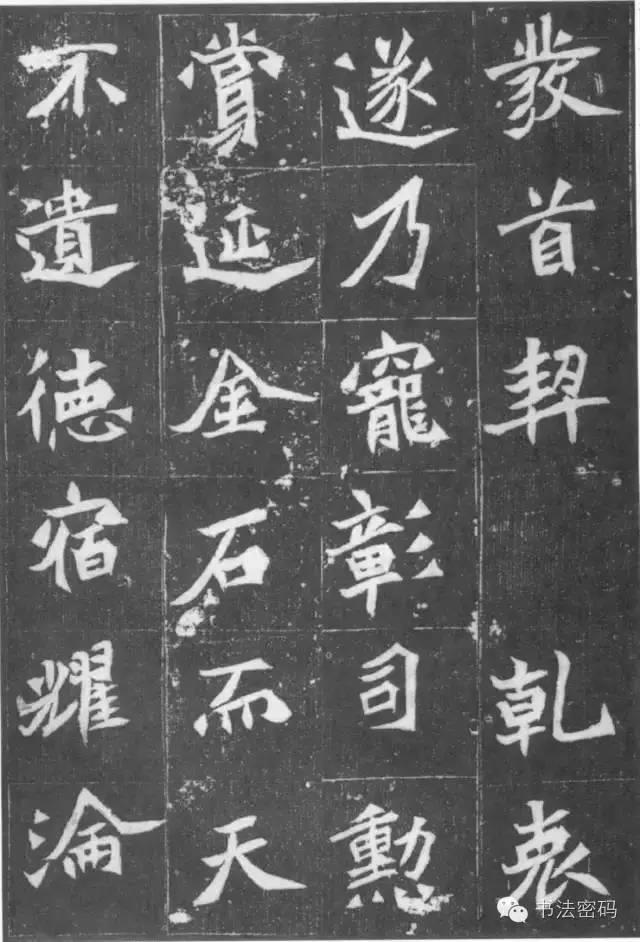 發首契 乾衷
遂乃寵彰司勳
賞延金石而天
不遺德宿耀淪
书法密码